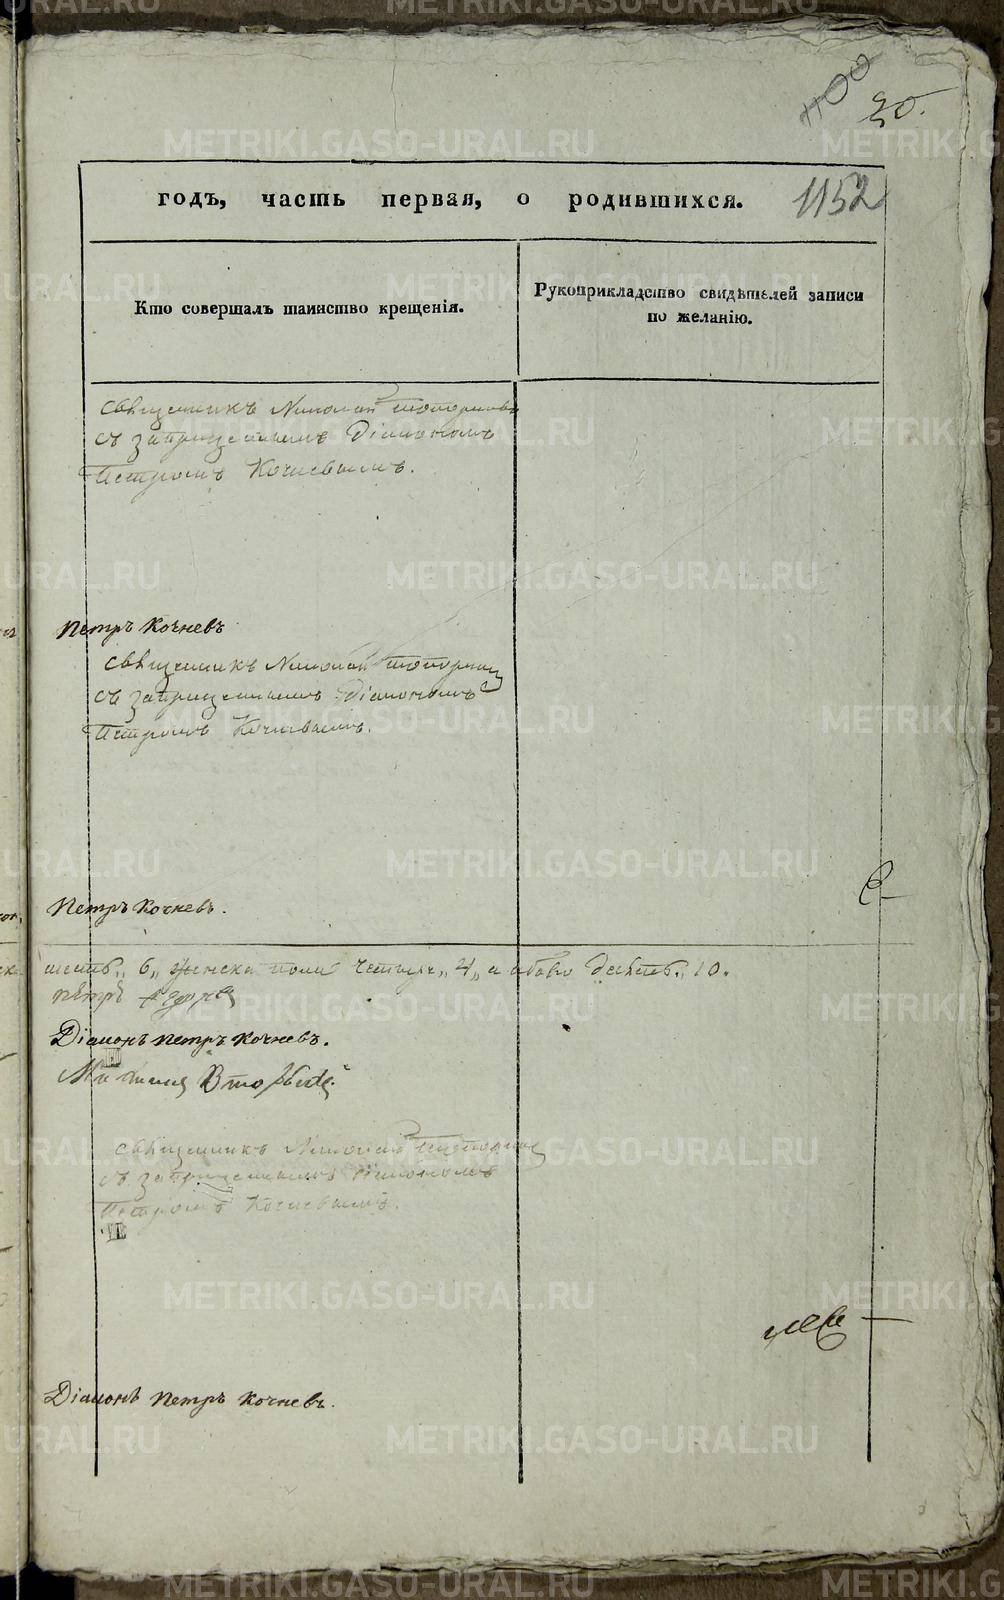 1100
20.
годъ, часть первая, о родившихся.
1152
Кто совершалъ таинство крещенія.
Рукоприкладство свидѣтелей записи
по желанію.
священникъ Николай Топорковъ
съ запрещеннымъ Діакономъ
Петромъ Кочневымъ.
Петръ Кочневъ
священникъ Николай
съ запрещеннымъ Діакономъ
Петромъ Кочневымъ.
Петръ Кочневъ.
шесть „6„ женска пола четыре „4„ а обоего десять „10.
петръ
Діаконъ петръ кочневъ.
священникъ Николай
съ запрещеннымъ діакономъ
Петромъ Кочневымъ.
Діаконъ Петръ Кочневъ.
METRIKI.GASO-URAL.RU